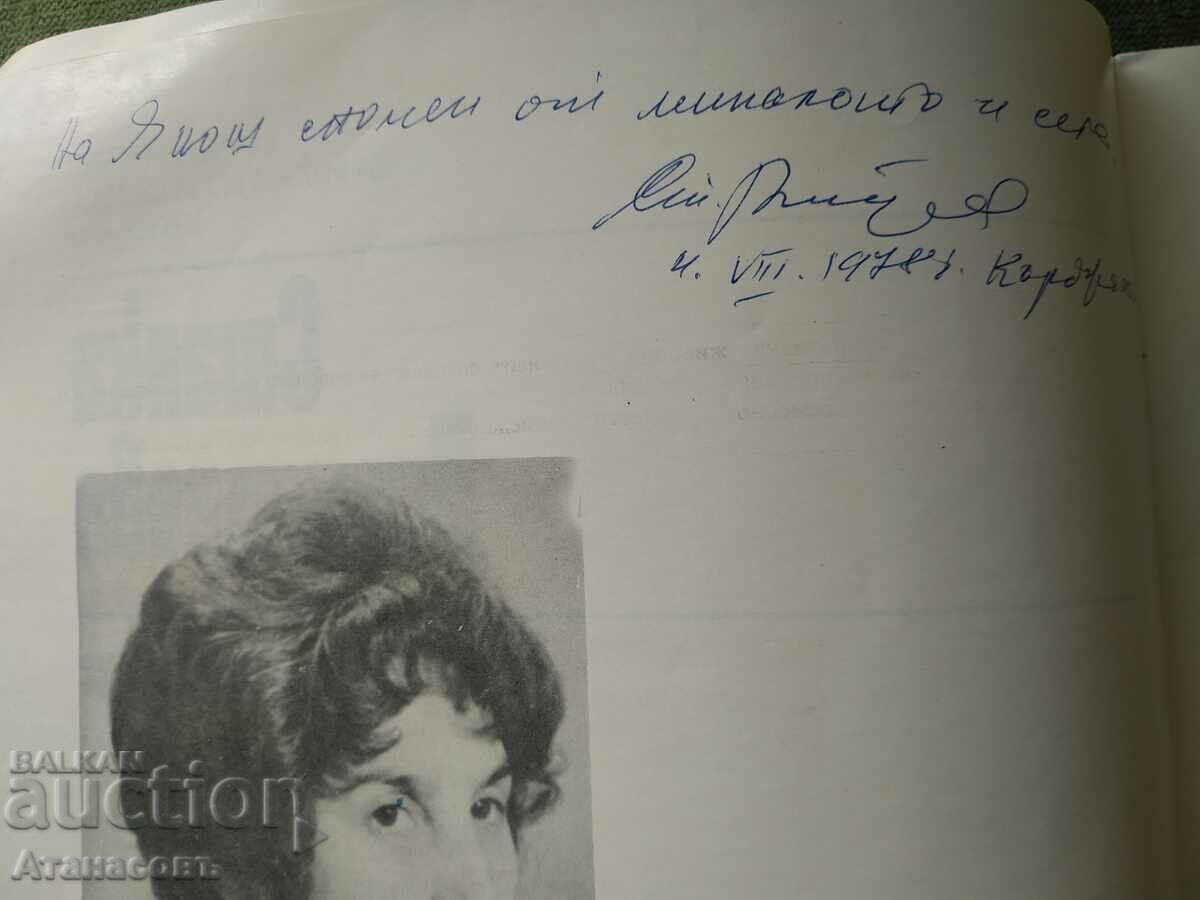 На Янош спомен от миналото и сега
Ст.
4. VIII. 1978г. Кърджали
BALKAN
auction
Атанасовъ